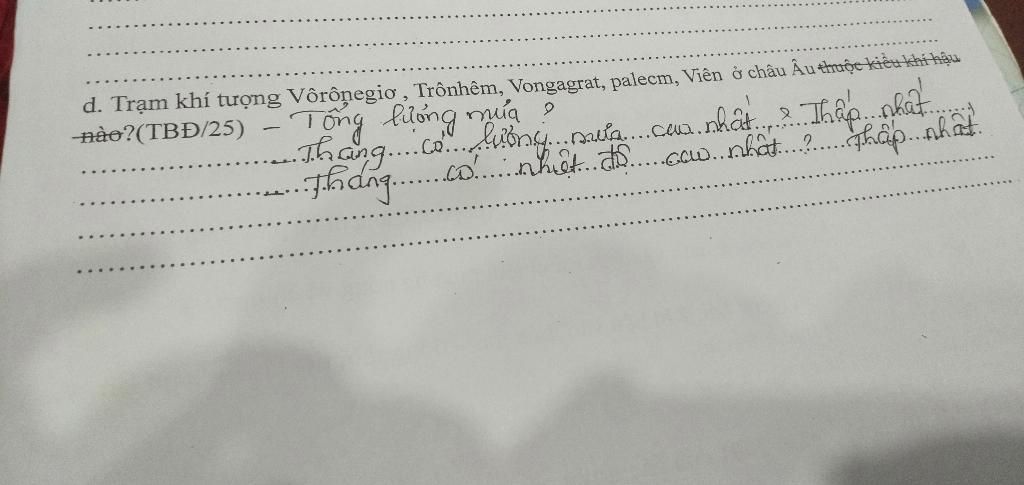 d. Trạm khí tượng Vôrônegiơ , Trônhêm, Vongagrat, palecm, Viên ở châu Âu thuộc kiểu khí hậu
nào?(TBĐ/25) - Tổng lượng mưa ?
- Tháng có lượng mưa cao nhất, ? Thấp nhất
- Tháng có nhiệt độ cao nhất ? Thấp nhất